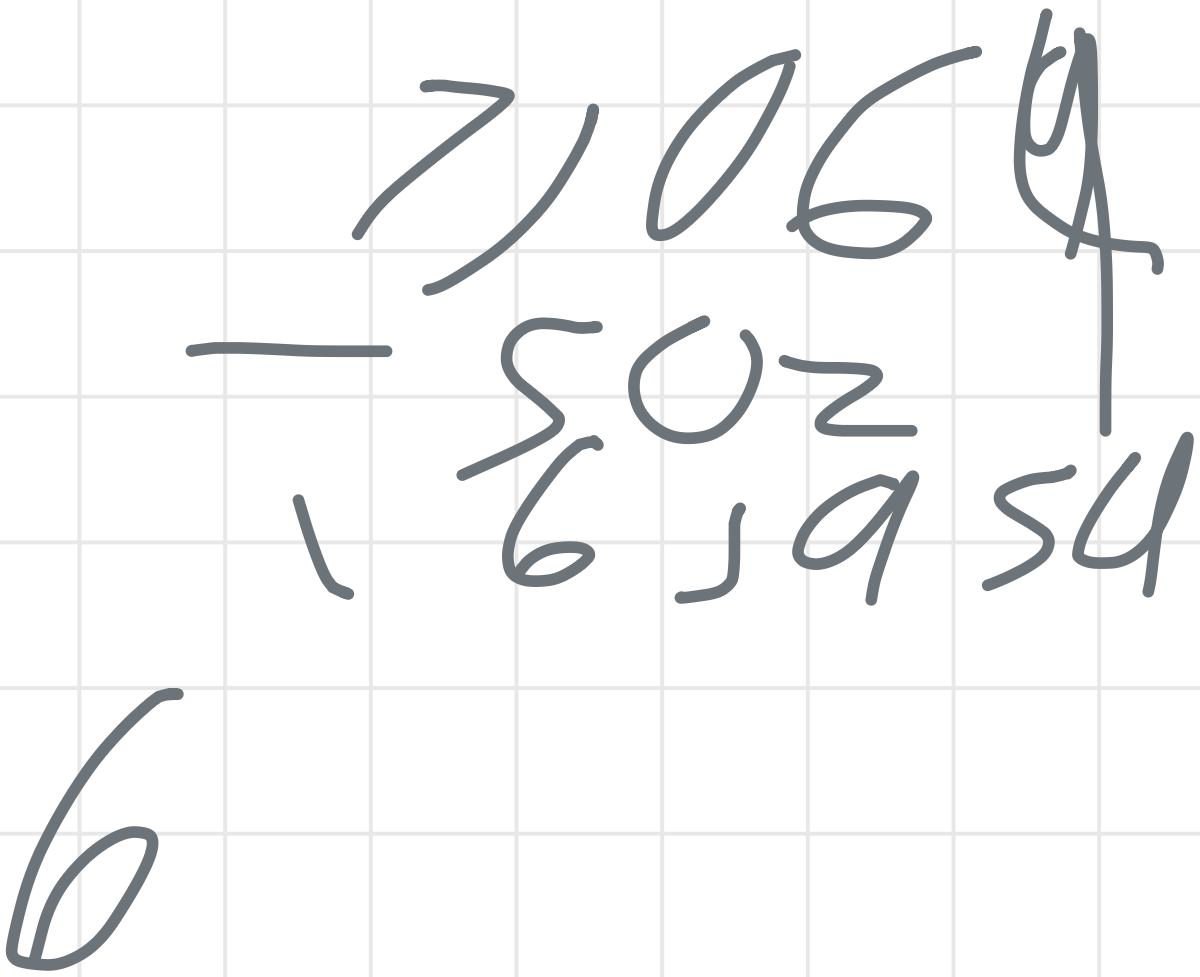 7,064
- 502
\ 6,954
6